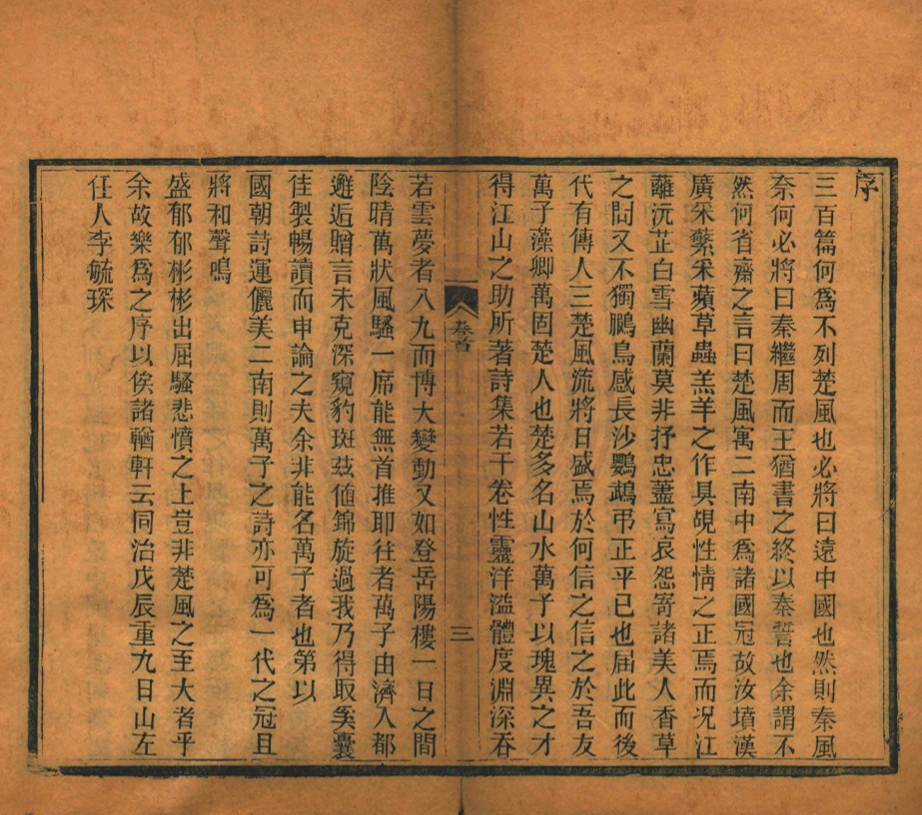 序
三百篇何爲不列楚風也必將曰遠中國也然則秦風
奈何必將曰秦繼周而王猶書之終以秦誓也余謂不
然何省齋之言曰楚風寓二南中爲諸國冠故汝墳漢
廣采蘩采蘋草蟲羔羊之作具覘性情之正焉而況江
蘺沅芷白雪幽蘭莫非抒忠藎寫哀怨寄諸美人香草
之間又不獨鵬鳥感長沙鸚鵡弔正平已也屆此而後
代有傳人三楚風流將日盛焉於何信之信之於吾友
萬子藻卿萬固楚人也楚多名山水萬子以瑰異之才
得江山之助所著詩集若干卷性靈洋溢體度淵深吞
卷首
三
若雲夢者八九而博大變動又如登岳陽樓一日之間
陰晴萬狀風騷一席能無首推耶往者萬子由濟入都
邂逅贈言未克深窺豹斑茲値錦旋過我乃得取奚囊
佳製暢讀而申論之夫余非能名萬子者也第以
國朝詩運儷美二南則萬子之詩亦可爲一代之冠且
將和聲鳴
盛郁郁彬彬出屈騷悲憤之上豈非楚風之至大者乎
余故樂爲之序以俟諸輶軒云同治戊辰重九日山左
任人李毓琛